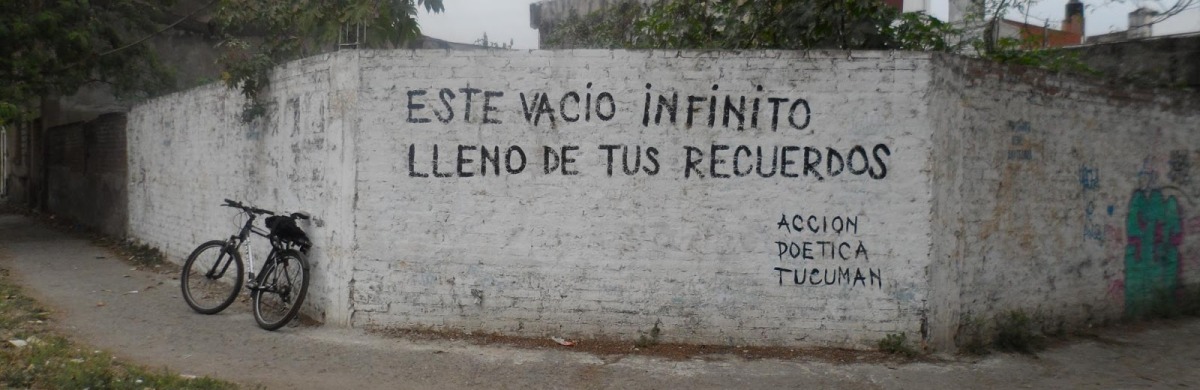 ESTE VACío iNFiNiTO
LLENO DE TUS RECUERDOS
ACCION
POETICA
TUCUMAN